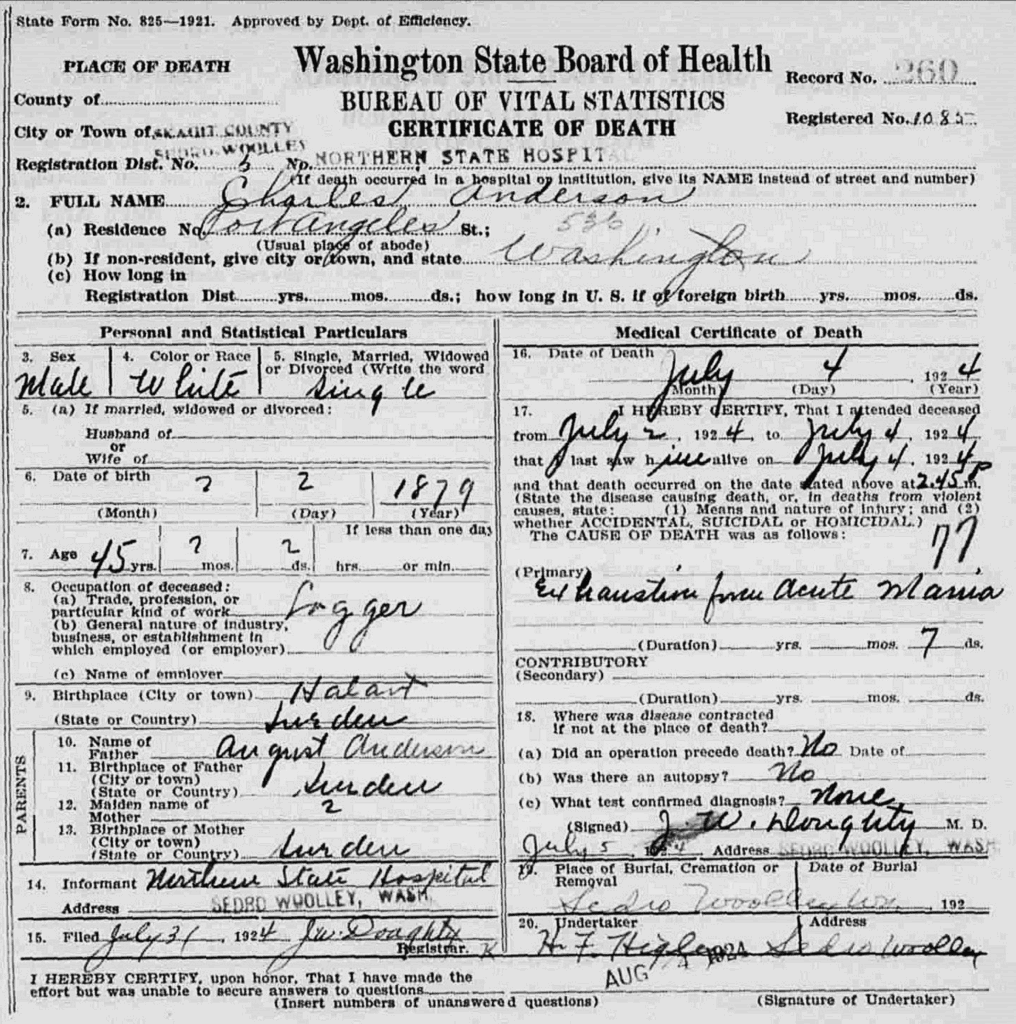 State Form No. 825—1921. Approved by Dept. of Efficiency.
PLACE OF DEATH
Washington State Board of Health
Record No. 260
County of
BUREAU OF VITAL STATISTICS
Registered No. 1085
City or Town of SKAGIT COUNTY
SEDRO-WOOLLEY
CERTIFICATE OF DEATH
Registration Dist. No. 5 No. NORTHERN STATE HOSPITAL
(If death occurred in a hospital or institution, give its NAME instead of street and number)
2. FULL NAME Charles Anderson
(a) Residence No. Port Angeles St.; 536
(Usual place of abode)
(b) If non-resident, give city or town, and state Washington
(c) How long in
Registration Dist. yrs. mos. ds.; how long in U. S. if of foreign birth yrs. mos. ds.
Personal and Statistical Particulars
3. Sex 4. Color or Race 5. Single, Married, Widowed
or Divorced (Write the word
Male White Single
5. (a) If married, widowed or divorced:
Husband of
or
Wife of
6. Date of birth ? 2 1879
(Month) (Day) (Year)
If less than one day
7. Age 45 yrs. ? mos. 2 ds. hrs. or min.
8. Occupation of deceased:
(a) Trade, profession, or
particular kind of work Logger
(b) General nature of industry,
business, or establishment in
which employed (or employer)
(c) Name of employer
9. Birthplace (City or town)
(State or Country) Sweden
PARENTS
10. Name of
Father August Anderson
11. Birthplace of Father
(City or town)
(State or Country) Sweden
12. Maiden name of
Mother ?
13. Birthplace of Mother
(City or town)
(State or Country) Sweden
14. Informant Northern State Hospital
Address SEDRO WOOLLEY, WASH.
15. Filed July 31 1924 J W Doughty
Registrar.
Medical Certificate of Death
16. Date of Death July 4, 1924
(Month) (Day) (Year)
17. I HEREBY CERTIFY, That I attended deceased
from July 2, 1924, to July 4, 1924
that I last saw him alive on July 4, 1924
and that death occurred on the date stated above at 2.45 P m.
(State the disease causing death, or, in deaths from violent
causes, state: (1) Means and nature of injury; and (2)
whether ACCIDENTAL, SUICIDAL or HOMICIDAL.)
The CAUSE OF DEATH was as follows:
77
(Primary)
Exhaustion from Acute Mania
(Duration) yrs. mos. 7 ds.
CONTRIBUTORY
(Secondary)
(Duration) yrs. mos. ds.
18. Where was disease contracted
if not at the place of death?
(a) Did an operation precede death? No Date of
(b) Was there an autopsy? No
(c) What test confirmed diagnosis? None
(Signed) J. W. Doughty M. D.
July 5, 1924 Address SEDRO WOOLLEY, WASH.
19. Place of Burial, Cremation or
Removal
Date of Burial
Sedro Woolley Wn. 192
20. Undertaker Address
H. F. Sedro Woolley
AUG 4 1924
I HEREBY CERTIFY, upon honor, That I have made the
effort but was unable to secure answers to questions
(Insert numbers of unanswered questions)
(Signature of Undertaker)